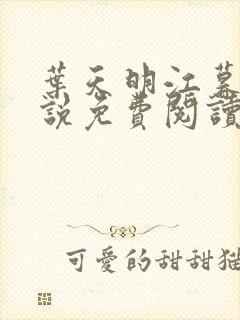 葉天明江暮
說免費閱讀
可愛的甜甜貓